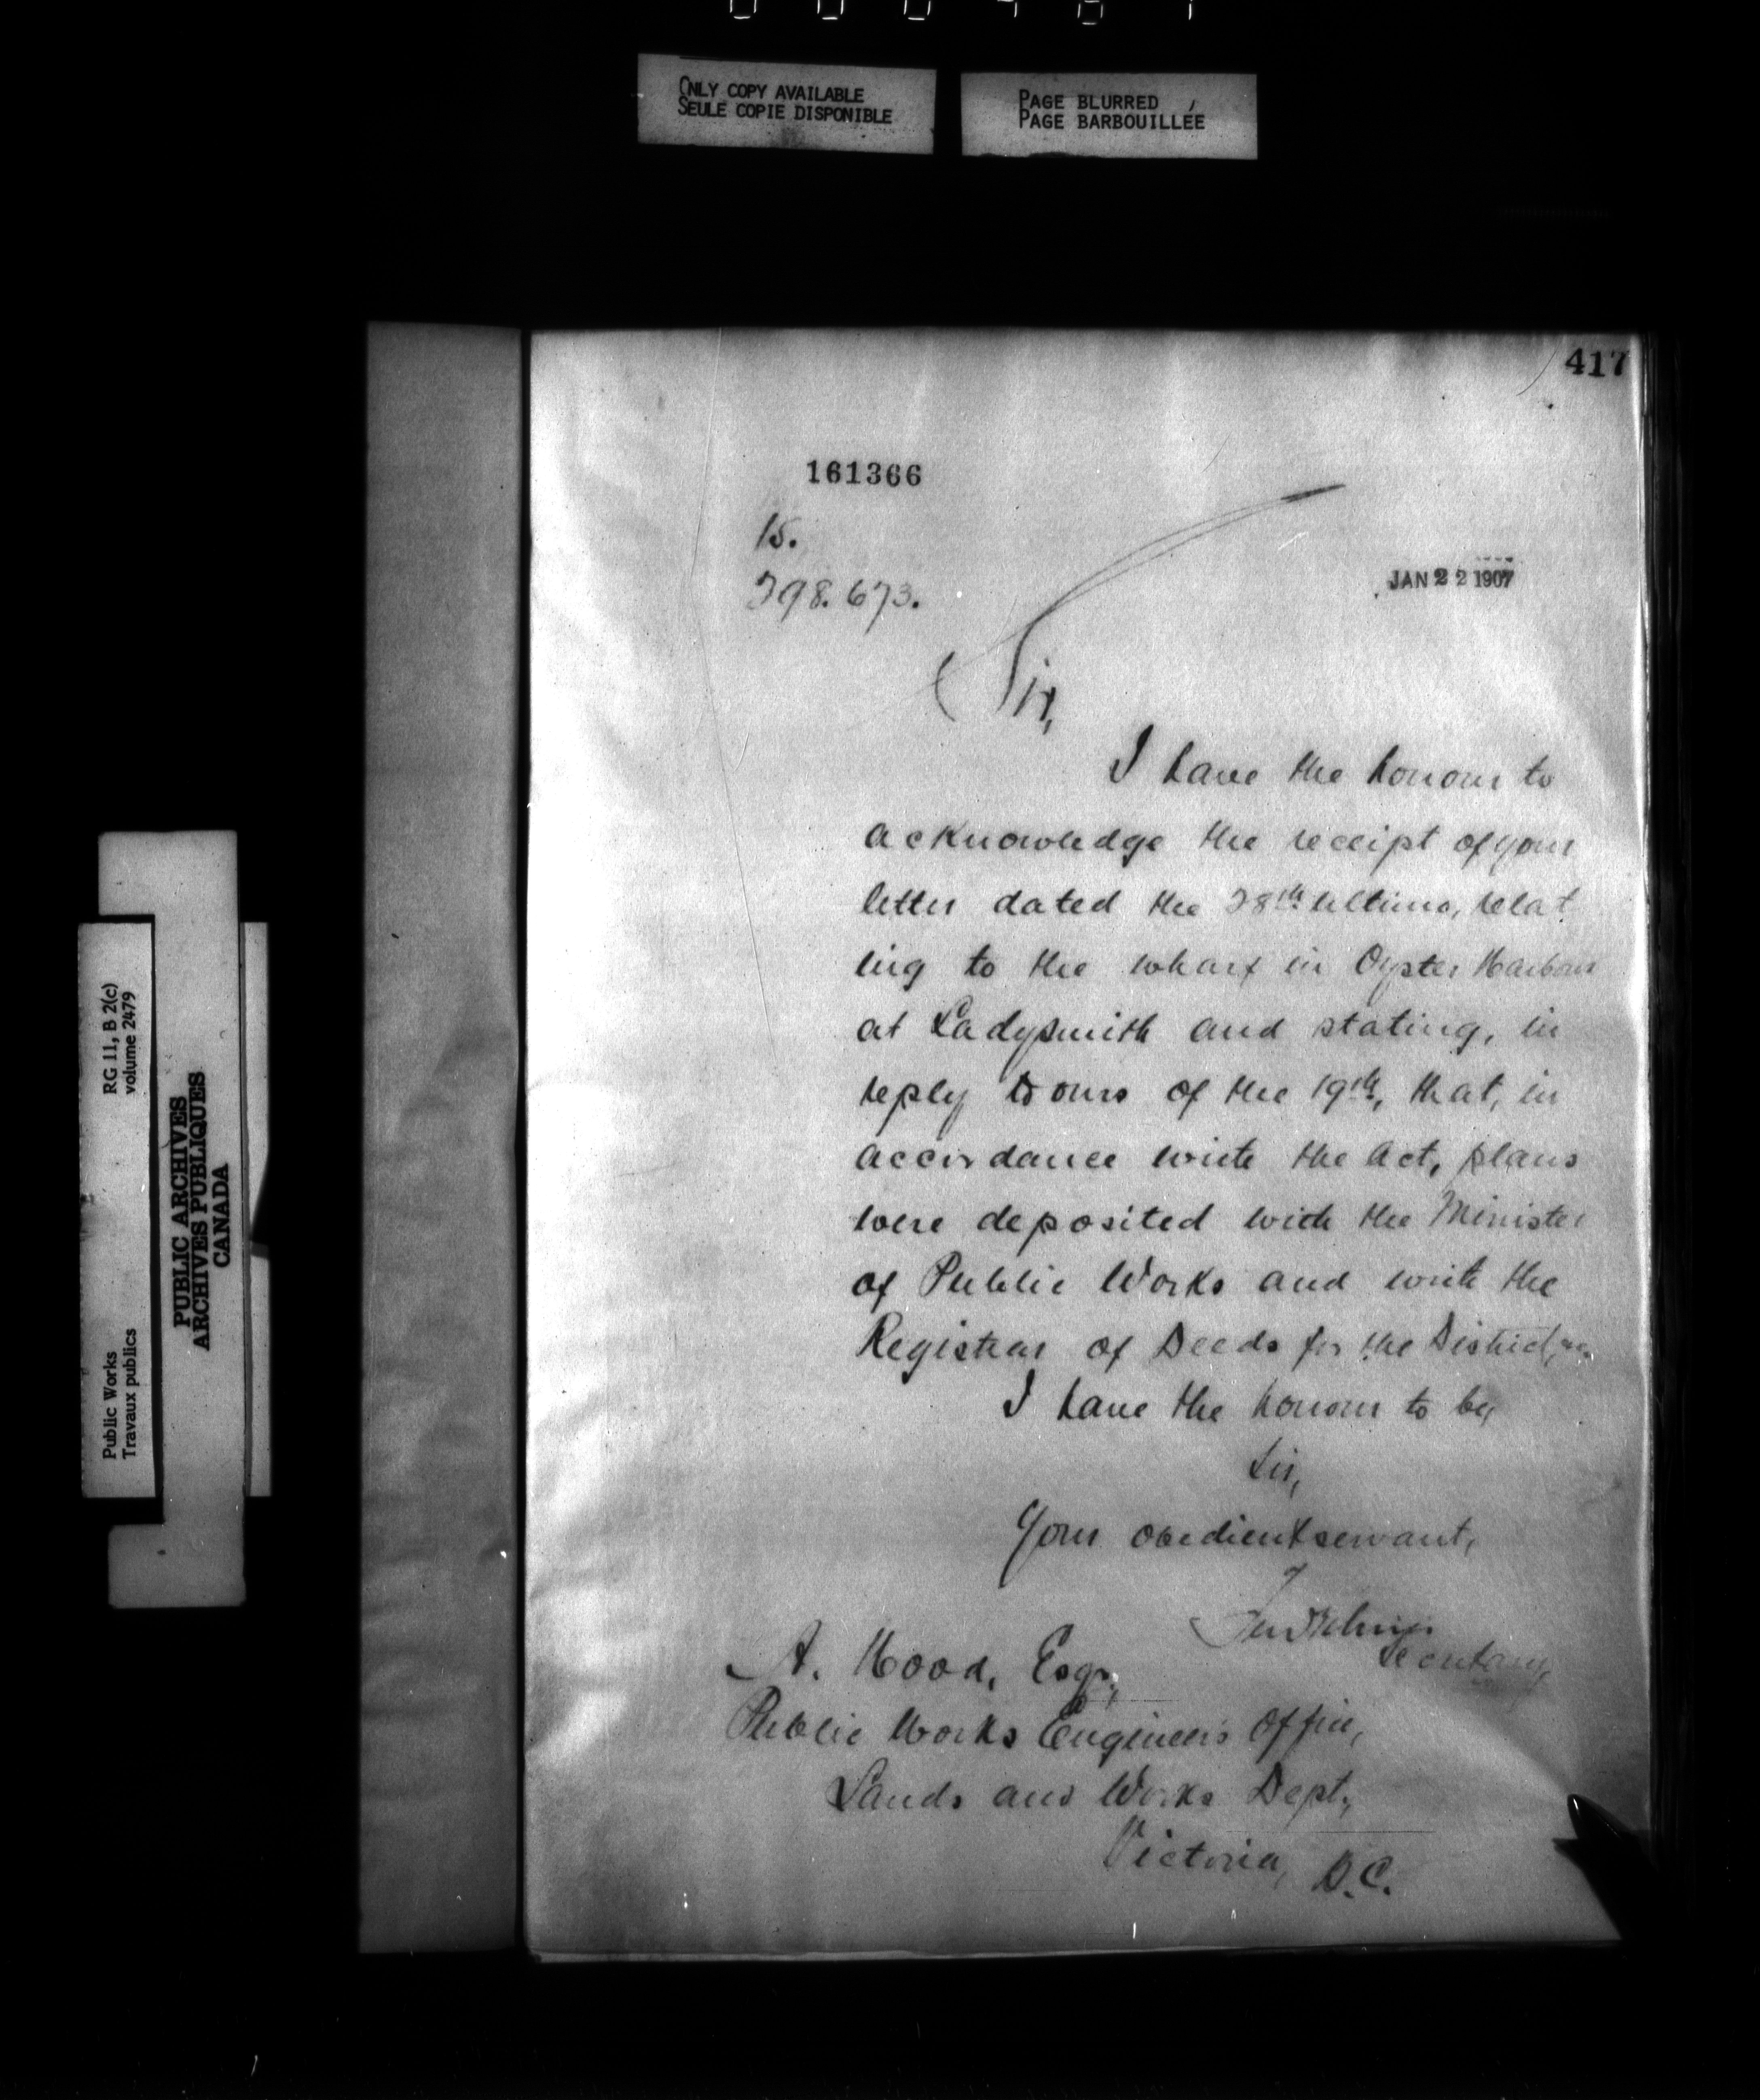 ONLY COPY AVAILABLE
SEULE COPIE DISPONIBLE
PAGE BLURRED
PAGE BARBOUILLÉE
417
161366
15.
298.673.
JAN 22 1907
Sir,
I have the honour to
acknowledge the receipt of your
letter dated the 28th ultimo, relat
ing to the wharf in Oyster Harbour
at Ladysmith and stating, in
reply to ours of the 19th, that, in
accordance with the Act, plans
were deposited with the Minister
of Public Works and with the
Registrar of Deeds for the District,
I have the honour to be,
Sir,
Your obedient servant,
Secretary,
A. Hood, Esqr,
Public Works Engineer's Office,
Lands and Works Dept.,
Victoria, B.C.
RG 11, B 2(c)
volume 2479
PUBLIC ARCHIVES
ARCHIVES PUBLIQUES
CANADA
Public Works
Travaux publics